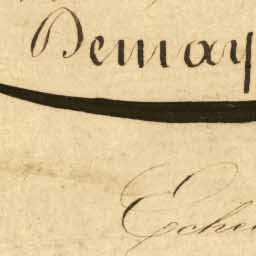 Demay
Eche